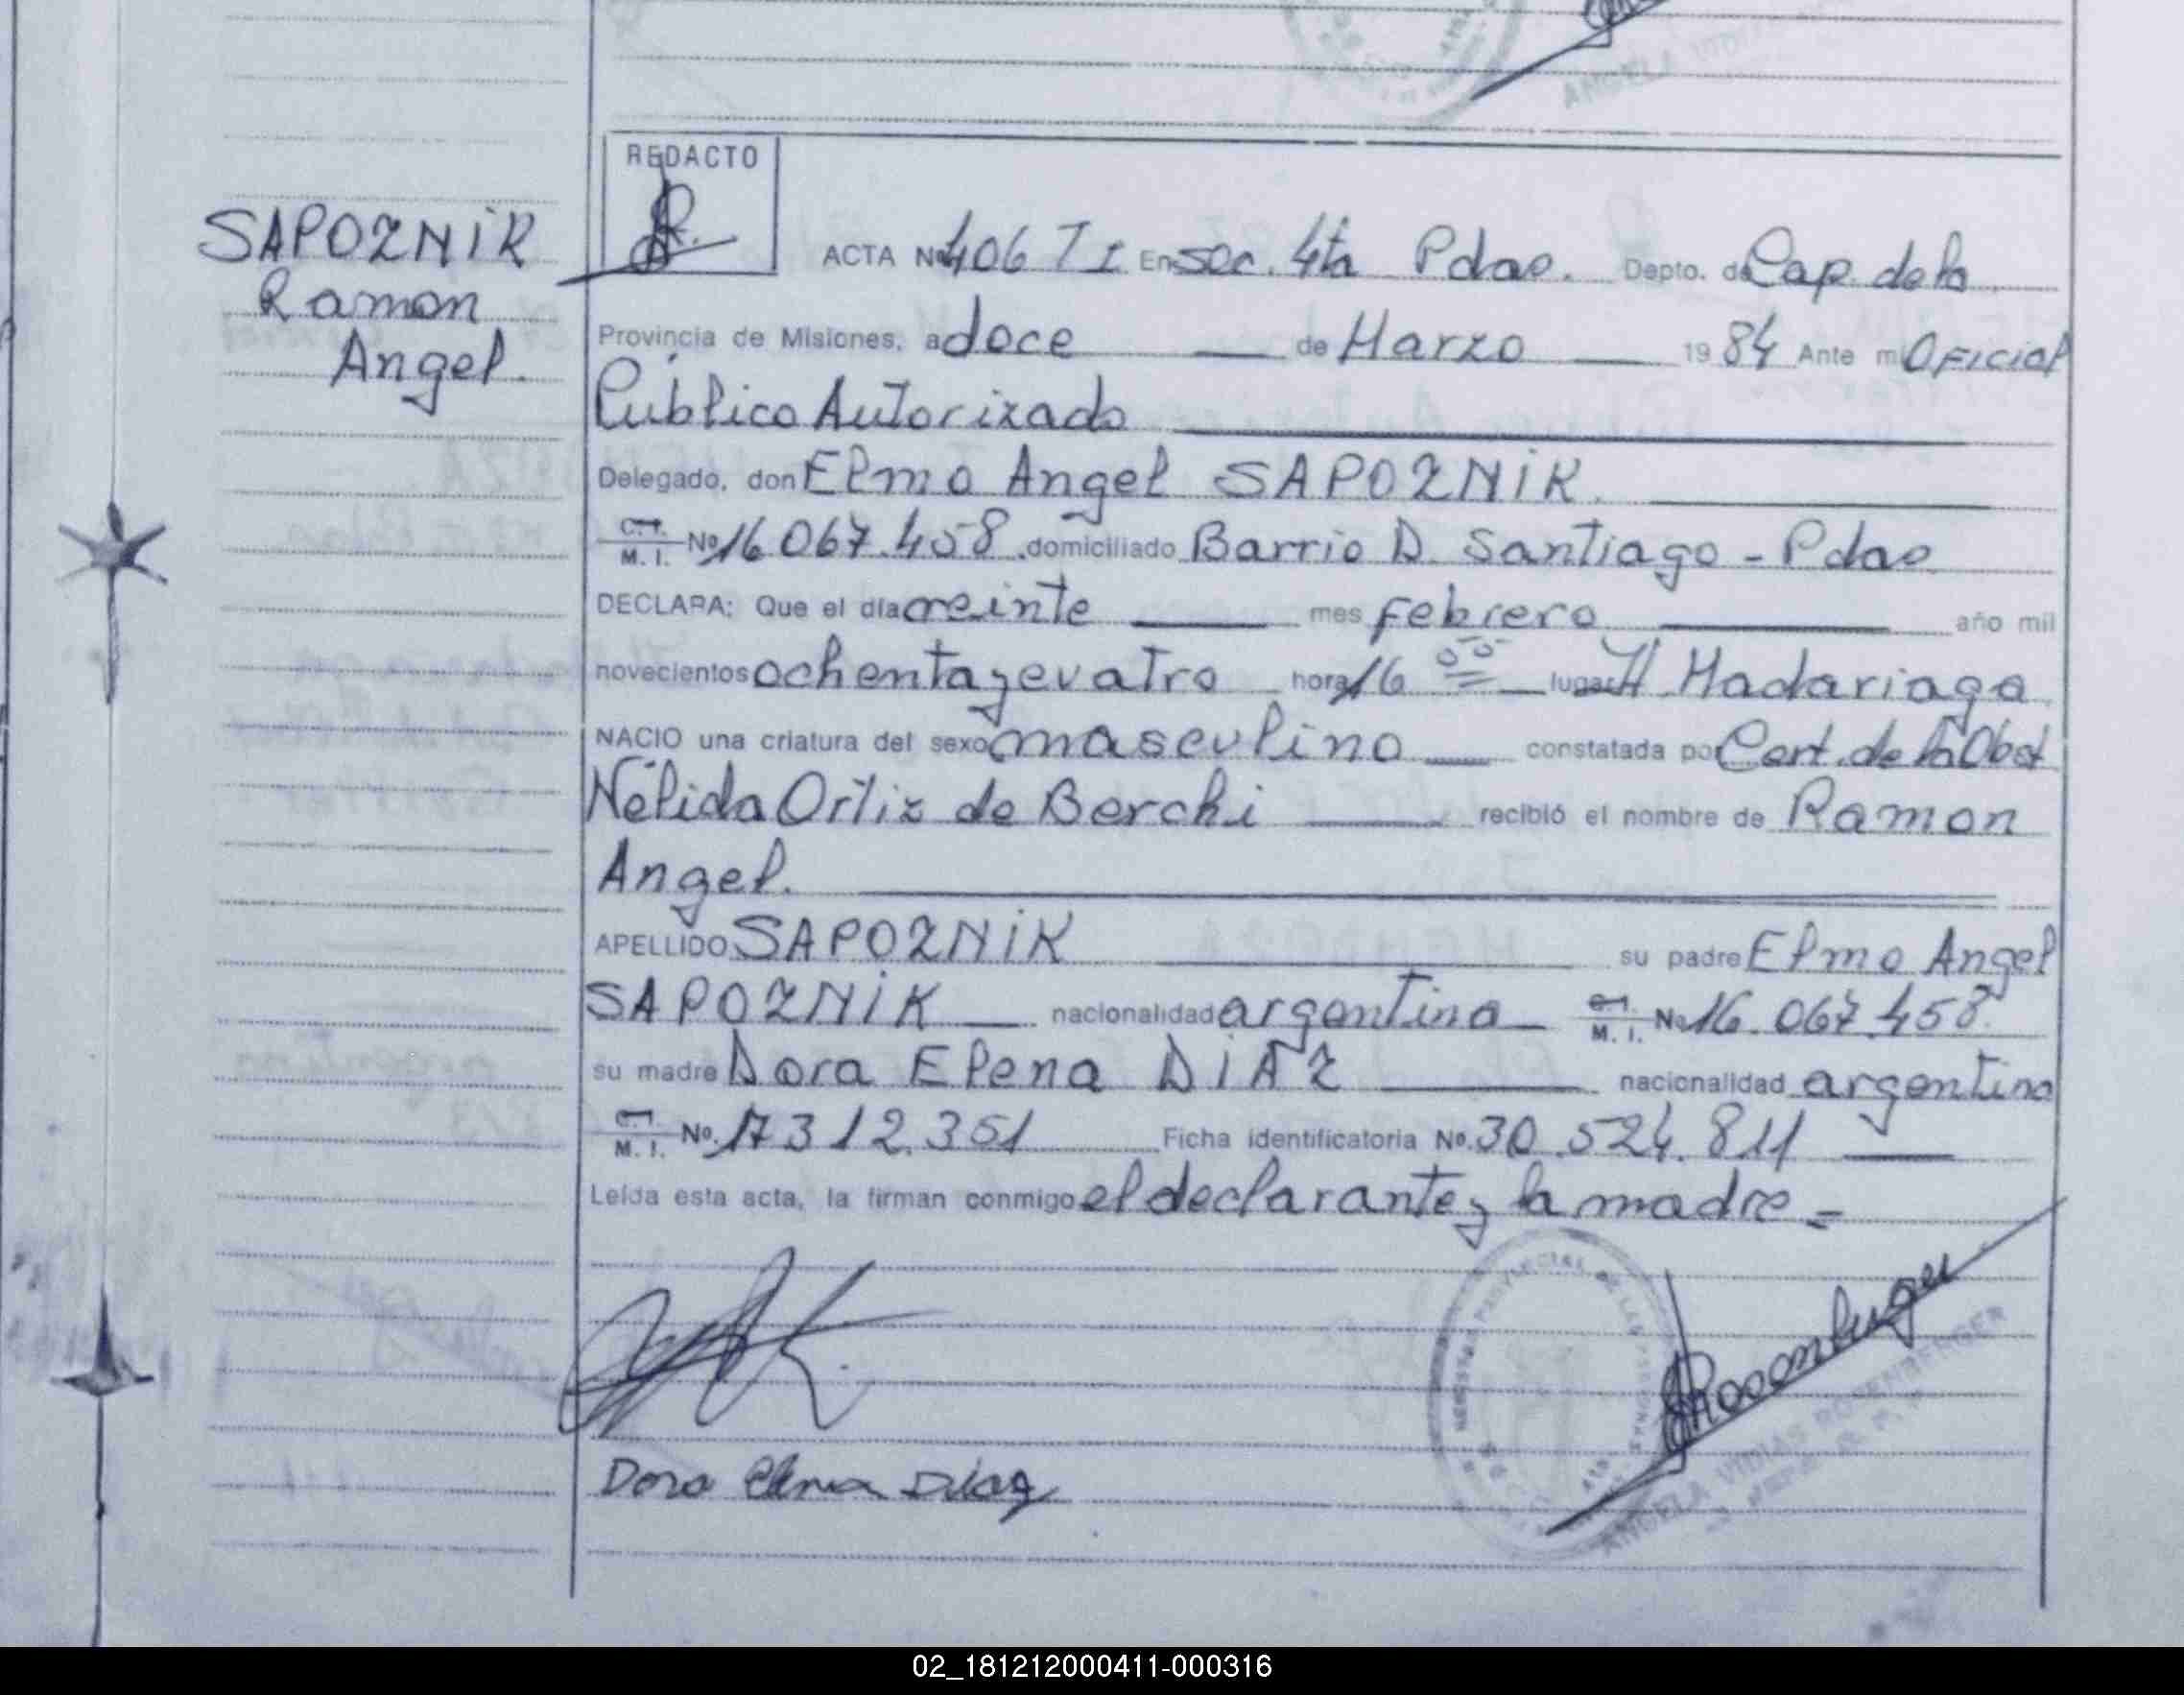 REDACTO
SAPOZNIK
Ramon
Angel.
ACTA Nº 406 T I En sec. 4ta Pdas. Depto. de Cap. de la
Provincia de Misiones, a doce de Marzo 1984 Ante mi Oficial
Publico Autorizado
Delegado, don Elmo Angel SAPOZNIK.
C.I. M. I. Nº 16.067.458 domiciliado Barrio D. Santiago - Pdas
DECLARA: Que el día veinte mes febrero año mil
novecientos ochenta y cuatro hora 16 00 lugar H. Madariaga
NACIO una criatura del sexo masculino constatada por Cert. de la Obst
Nélida Ortiz de Berchi recibió el nombre de Ramon
Angel.
APELLIDO SAPOZNIK su padre Elmo Angel
SAPOZNIK nacionalidad argentino C.I. M. I. Nº 16.067.458.
su madre Dora Elena DIAZ nacionalidad argentina
C.I. M. I. Nº. 17312.351 Ficha identificatoria Nº. 30.524.811
Leída esta acta, la firman conmigo el declarante y la madre =
Dora Elena Diaz
ROSEMBERGER
02_181212000411-000316